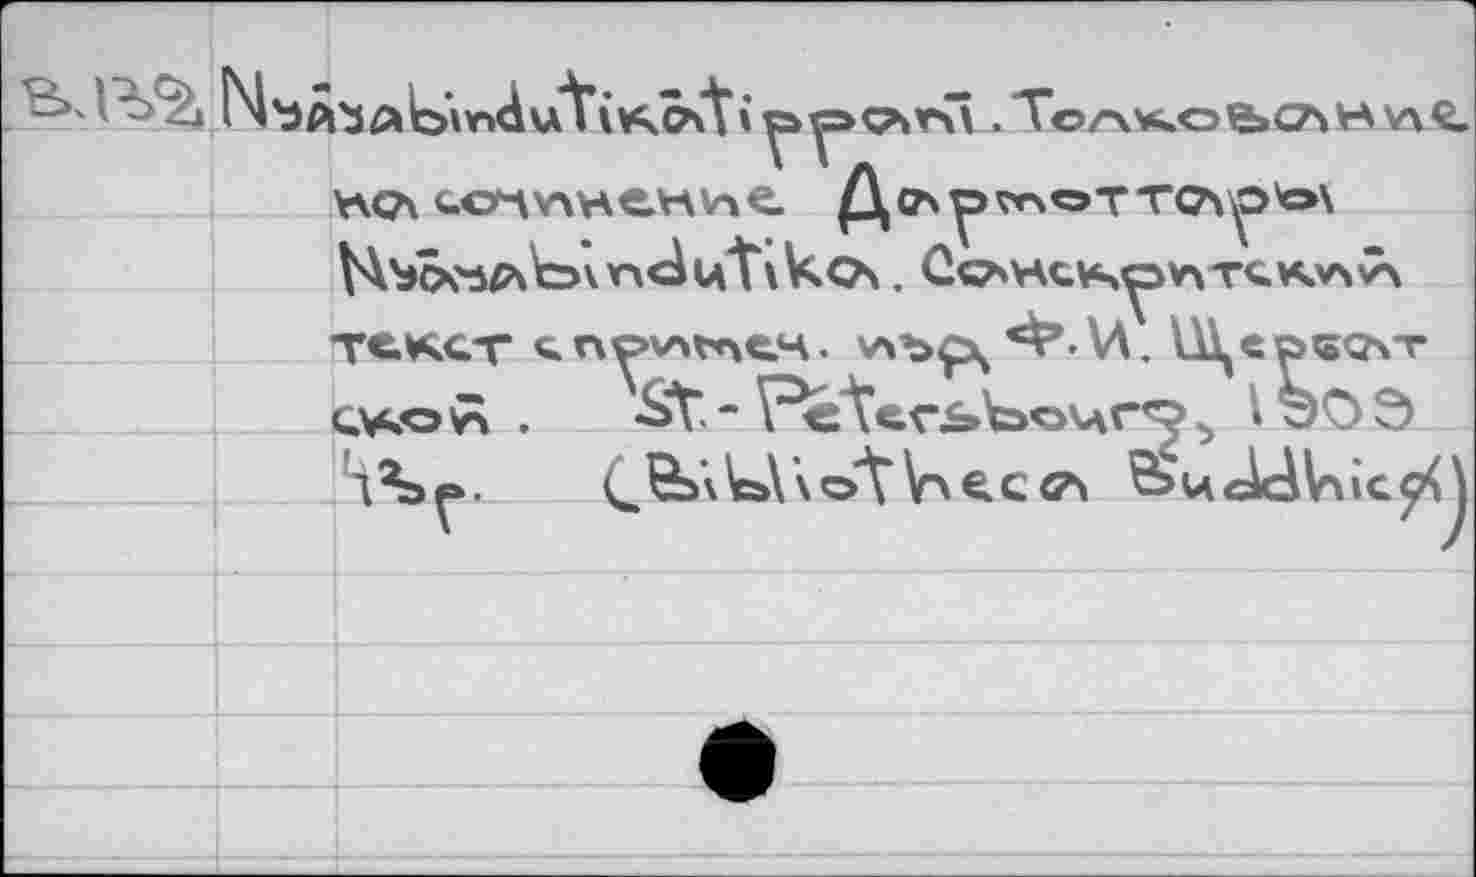 B.132, Nyāyabindutikātippaṇī. Толкование
на сочинение Дармоттары
Nyāyabindutikā. Санскритский
текст с примеч. изд. Ф. И. Щербат
ской. St.-Petersbourg, 1909
43p. (Bibliotheca Buddhica)